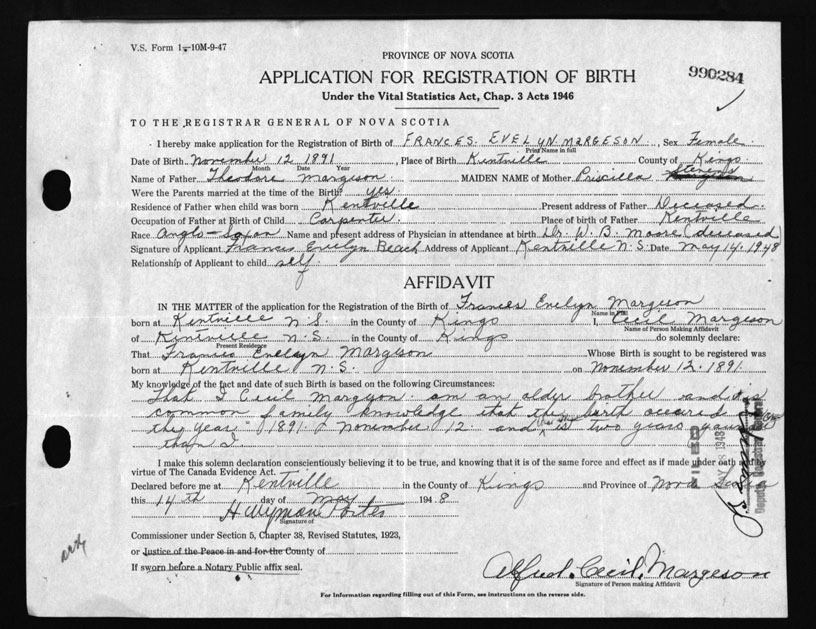 V.S. Form 1-10M-9-47
PROVINCE OF NOVA SCOTIA
APPLICATION FOR REGISTRATION OF BIRTH
990284
Under the Vital Statistics Act, Chap. 3 Acts 1946
TO THE REGISTRAR GENERAL OF NOVA SCOTIA
I hereby make application for the Registration of Birth of FRANCES EVELYN MARGESON, Sex Female
Print Name in full
Date of Birth November 12 1891, Place of Birth Kentville County of Kings
Month Date Year
Stevens
Name of Father Theodore Margeson MAIDEN NAME of Mother Priscilla
Were the Parents married at the time of the Birth? yes
Residence of Father when child was born Kentville Present address of Father Deceased
Occupation of Father at Birth of Child Carpenter Place of birth of Father Kentville
Race Anglo-Saxon Name and present address of Physician in attendance at birth Dr. W. B. Moore (deceased)
Signature of Applicant Francis Evelyn Beach Address of Applicant Kentville N.S. Date May 14, 1948
Relationship of Applicant to child self
AFFIDAVIT
IN THE MATTER of the application for the Registration of the Birth of Frances Evelyn Margeson
Name in Full
born at Kentville N.S. in the County of Kings I, Cecil Margeson
Name of Person Making Affidavit
of Kentville N.S. in the County of Kings do solemnly declare:
Present Residence
That Francis Evelyn Margeson Whose Birth is sought to be registered was
born at Kentville N.S. on November 12, 1891
My knowledge of the fact and date of such Birth is based on the following Circumstances:
That I Cecil Margeson am an older brother and it is
common family knowledge that the birth occured
the year 1891 November 12 and that she is two years younger
than I.
FILED
MAY 1948
I make this solemn declaration conscientiously believing it to be true, and knowing that it is of the same force and effect as if made under oath
virtue of The Canada Evidence Act.
Declared before me at Kentville in the County of Kings and Province of Nova Scotia
this 14th day of May 1948
Signature of
Commissioner under Section 5, Chapter 38, Revised Statutes, 1923,
or Justice of the Peace in and for the County of
If sworn before a Notary Public affix seal.
Alfred Cecil Margeson
Signature of Person making Affidavit
For Information regarding filling out of this Form, see instructions on the reverse side.